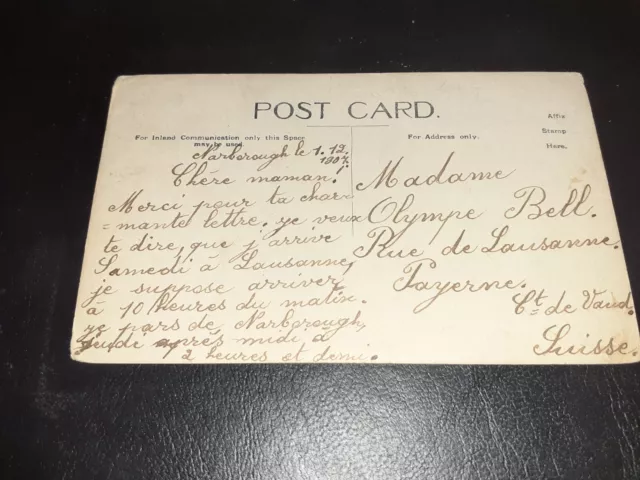 POST CARD.
For Inland Communication only this Space
may be used.
For Address only.
Affix
Stamp
Here.
Narborough le 1.12.
1907.
Chère maman!
Merci pour ta char=
=mante lettre. je veux
te dire, que j'arrive
Samedi à Lausanne,
je suppose arriver
à 10 heures du matin.
je pars de Narborough,
jeudi après midi à
2 heures et demi.
Madame
Olympe Bell.
Rue de Lausanne.
Payerne.
Ct. de Vaud.
Suisse.